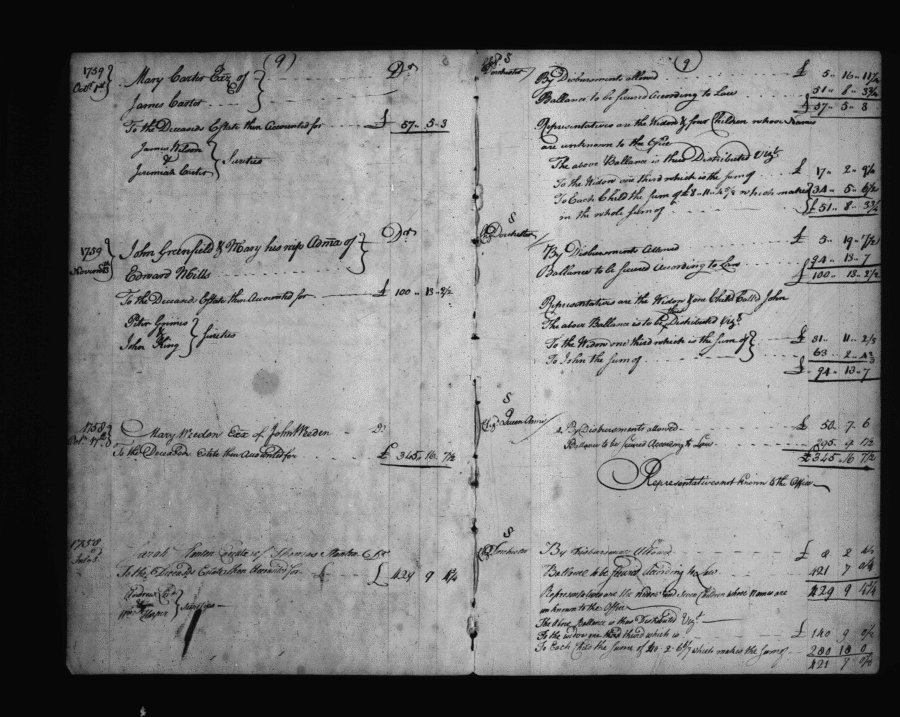 (9)
1759
Octr 1st
Mary Carter Exx of
Dr
James Carter
To the Deceaseds Estate then Accounted for £ 57.. 5.. 3
James Wilson
&
Jeremiah Carter
Sureties
1759
Novemr
John Greenfield & Mary his wife Adma of
Dr
Edward Mills
To the Deceaseds Estate then Accounted for £ 100.. 13.. 2½
Peter Grimes
&
John King
Sureties
1758
Mary Weedon Exx of John Weeden Dr
To the Deceaseds Estate then Accounted for £ 345.. 16 7½
1758
Sarah Executx of Thomas Dr
To the Deceaseds Estate then Accounted for £ 429 9
Sureties
(9)
Dorchester
By Disbursements allowed £ 5.. 16.. 11½
Ballance to be secured According to Law 51.. 8..
£ 57.. 5.. 3
Representatives are the Widow & four Children whose Names
are unknown to the Office
The above Ballance is thus Distributed Vizt
To the Widow one third which is the sum of £ 17.. 2..
To Each Child the Sum of £ 8.. 11.. which makes 34.. 5..
in the whole Sum of £ 51.. 8..
Dorchester
By Disbursements Allowed £ 5.. 19..
Ballance to be secured According to Law 94.. 13.. 7
£ 100.. 13.. 2½
Representatives are the Widow & one Child Called John
The above Ballance is to be thus Distributed Vizt
To the Widow one third which is the Sum of £ 31.. 11.. 2⅓
To John the Sum of 63.. 2..
£ 94.. 13.. 7
Queen Anns
By Disbursements allowed £ 50.. 7.. 6
Ballance to be secured According to Law 295.. 9 1½
£ 345.. 16 7½
Representatives not known to the Office
Dorchester
By Disbursements Allowed £ 8 2
Ballance to be secured According to Law 421 7
£ 429 9
Representatives are the Widow and seven Children whose Names are
unknown to the Office
The above Ballance is thus Distributed Vizt
To the widow one third which is £ 140 9
To Each Child the Sum of 40.. 2.. which makes the Sum of 280 18 0
421 7